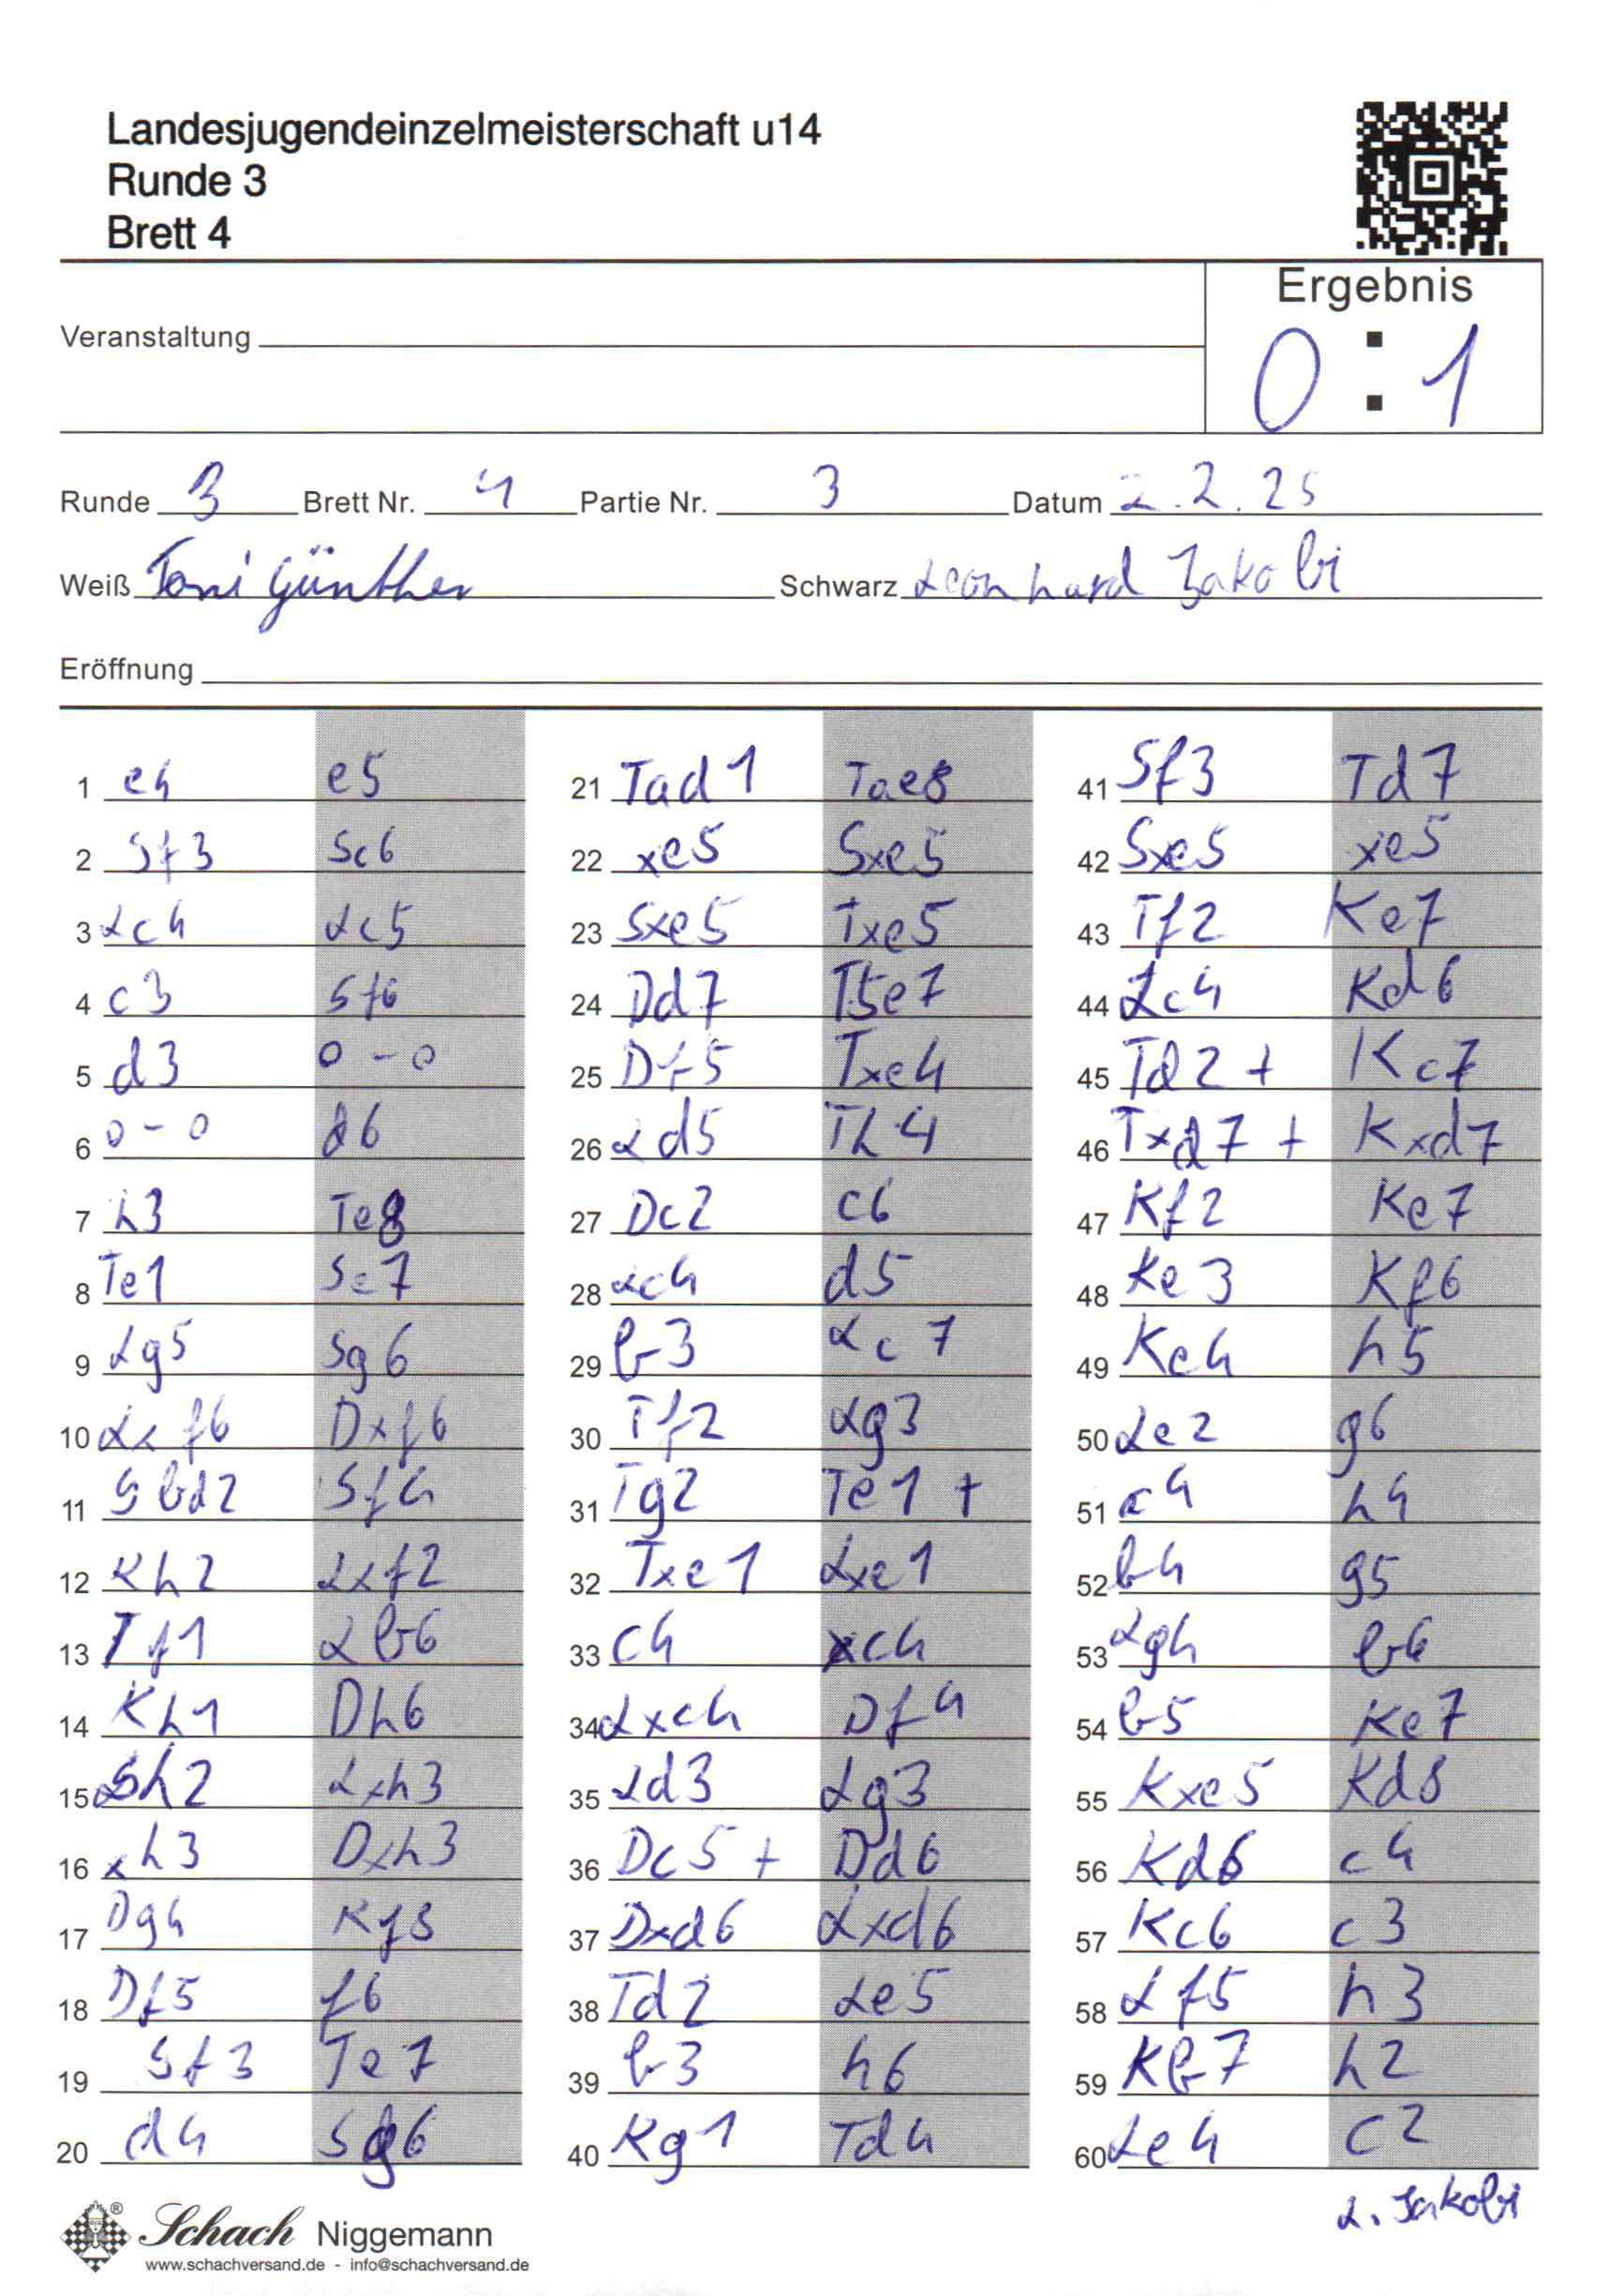 Landesjugendeinzelmeisterschaft u14
Runde 3
Brett 4
Ergebnis
0 : 1
Veranstaltung
Runde 3 Brett Nr. 4 Partie Nr. 3 Datum 2.2.25
Weiß Toni Günther Schwarz Leonhard Jakobi
Eröffnung
1 e4 e5
2 Sf3 Sc6
3 Lc4 Lc5
4 c3 Sf6
5 d3 0-0
6 0-0 d6
7 h3 Te8
8 Te1 Se7
9 Lg5 Sg6
10 Lxf6 Dxf6
11 Sbd2 Sf4
12 Kh2 Lxf2
13 Tf1 Lb6
14 Kh1 Dh6
15 Sh2 Lxh3
16 xh3 Dxh3
17 Dg4 Kf8
18 Df5 f6
19 Sf3 Te7
20 d4 Sg6
21 Tad1 Tae8
22 xe5 Sxe5
23 Sxe5 Txe5
24 Dd7 T5e7
25 Df5 Txe4
26 Ld5 Th4
27 Dc2 c6
28 Lc4 d5
29 b3 Lc7
30 Tf2 Lg3
31 Tg2 Te1+
32 Txe1 Lxe1
33 c4 xc4
34 Lxc4 Df4
35 Ld3 Lg3
36 Dc5+ Dd6
37 Dxd6 Lxd6
38 Td2 Le5
39 b3 h6
40 Kg1 Td4
41 Sf3 Td7
42 Sxe5 xe5
43 Tf2 Ke7
44 Lc4 Kd6
45 Td2+ Kc7
46 Txd7+ Kxd7
47 Kf2 Ke7
48 Ke3 Kf6
49 Ke4 h5
50 Le2 g6
51 a4 h4
52 b4 g5
53 Lg4 b6
54 b5 Ke7
55 Kxe5 Kd8
56 Kd6 c4
57 Kc6 c3
58 Lf5 h3
59 Kb7 h2
60 Le4 c2
L. Jakobi
Schach Niggemann
www.schachversand.de - info@schachversand.de